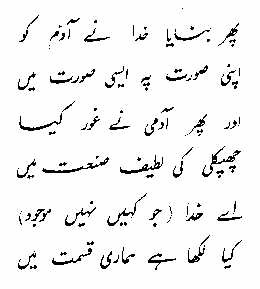 پھر بنایا خدا نے آدم کو
اپنی صورت پہ ایسی صورت میں
اور پھر آدمی نے غور کیا
چھپکلی کی لطیف صنعت میں
اے خدا (جو کہیں نہیں موجود)
کیا لکھا ہے ہماری قسمت میں